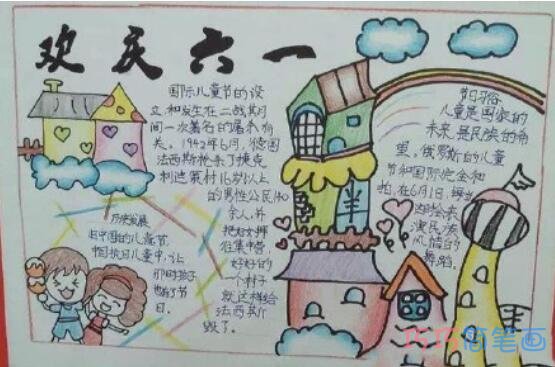 欢庆六一
国际儿童节的设
立,和发生在二战其月
间一次著名的屠杀有
关。1942年6月,德国
法西斯枪杀了捷克
利迪策村16岁以上
的男性公民140
余人,并
把妇女押
往集中营。
好好的
一个村子
就这样给
法西斯
毁了。
历史发展
旧中国的儿童节
帼抗日儿童中,让
那时孩子
也有了节
日。
节日习俗
儿童是国家的
未来,是民族的希
望。俄罗斯的儿童
节和国际
拍,在6月1日,
演民族
风情的
舞蹈。
巧巧简笔画